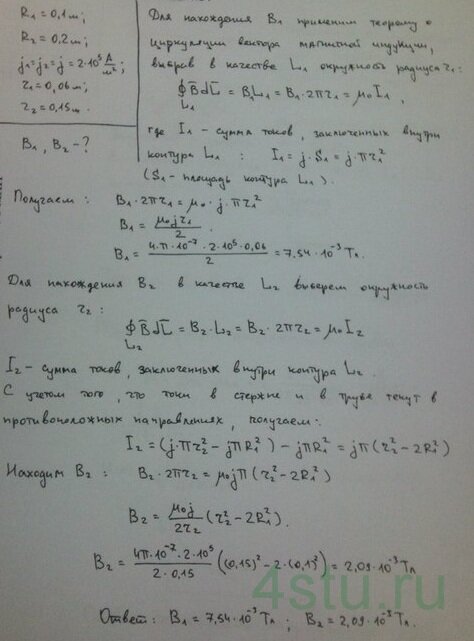 R₁ = 0,1 м;
R₂ = 0,2 м;
j₁ = j₂ = j = 2·10⁵ А/м²;
r₁ = 0,06 м;
r₂ = 0,15 м.
B₁, B₂ - ?
Для нахождения B₁ применим теорему о
циркуляции вектора магнитной индукции,
выбрав в качестве L₁ окружность радиуса r₁:
∮ B⃗ dL⃗ = B₁L₁ = B₁·2πr₁ = μ₀I₁,
L₁
где I₁ - сумма токов, заключенных внутри
контура L₁ : I₁ = j·S₁ = j·πr₁²
(S₁ - площадь контура L₁).
Получаем: B₁·2πr₁ = μ₀·j·πr₁²
B₁ = μ₀jr₁/2.
B₁ = 4·π·10⁻⁷·2·10⁵·0,06/2 = 7,54·10⁻³ Тл.
Для нахождения B₂ в качестве L₂ выберем окружность
радиуса r₂:
∮ B⃗ dL⃗ = B₂·L₂ = B₂·2πr₂ = μ₀I₂
L₂
I₂ - сумма токов, заключенных внутри контура L₂.
С учетом того, что токи в стержне и в трубе текут в
противоположных направлениях, получаем:
I₂ = (j·πr₂² - jπR₁²) - jπR₁² = jπ(r₂² - 2R₁²)
Находим B₂: B₂·2πr₂ = μ₀jπ(r₂² - 2R₁²)
B₂ = μ₀j/2r₂ (r₂² - 2R₁²).
B₂ = 4π·10⁻⁷·2·10⁵/2·0,15 ((0,15)² - 2·(0,1)²) = 2,09·10⁻³ Тл
4stu.ru
Ответ: B₁ = 7,54·10⁻³ Тл; B₂ = 2,09·10⁻³ Тл.